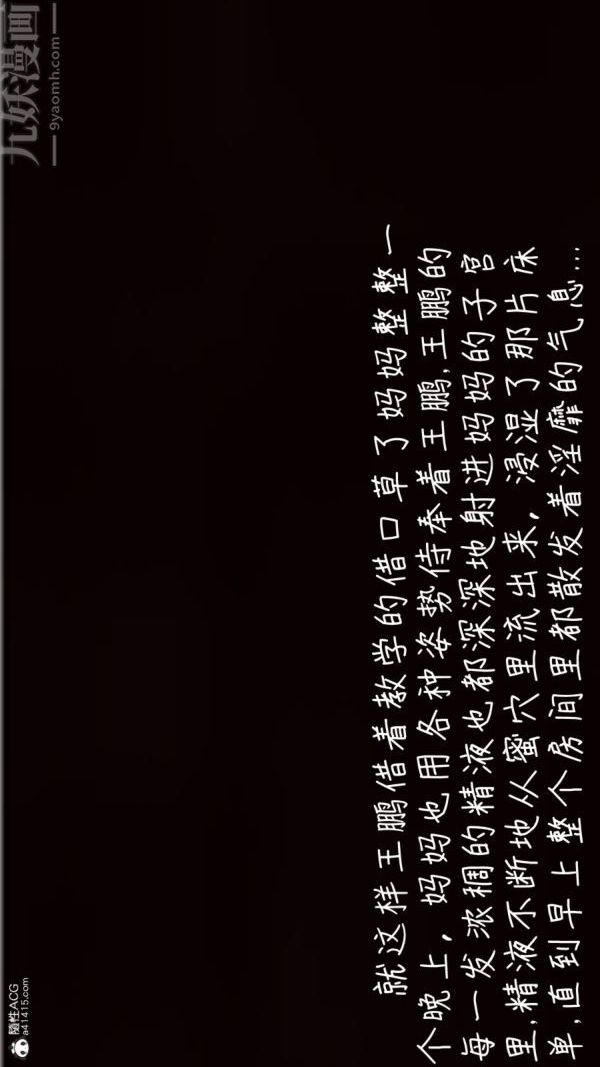 九妖漫画
9yaomh.com
就这样王鹏借着教学的借口草了妈妈整整一
个晚上，妈妈也用各种姿势侍奉着王鹏,王鹏的
每一发浓稠的精液也都深深地射进妈妈的子宫
里,精液不断地从蜜穴里流出来，浸湿了那片床
单,直到早上整个房间里都散发着淫靡的气息…
隨性ACG
a41415.com